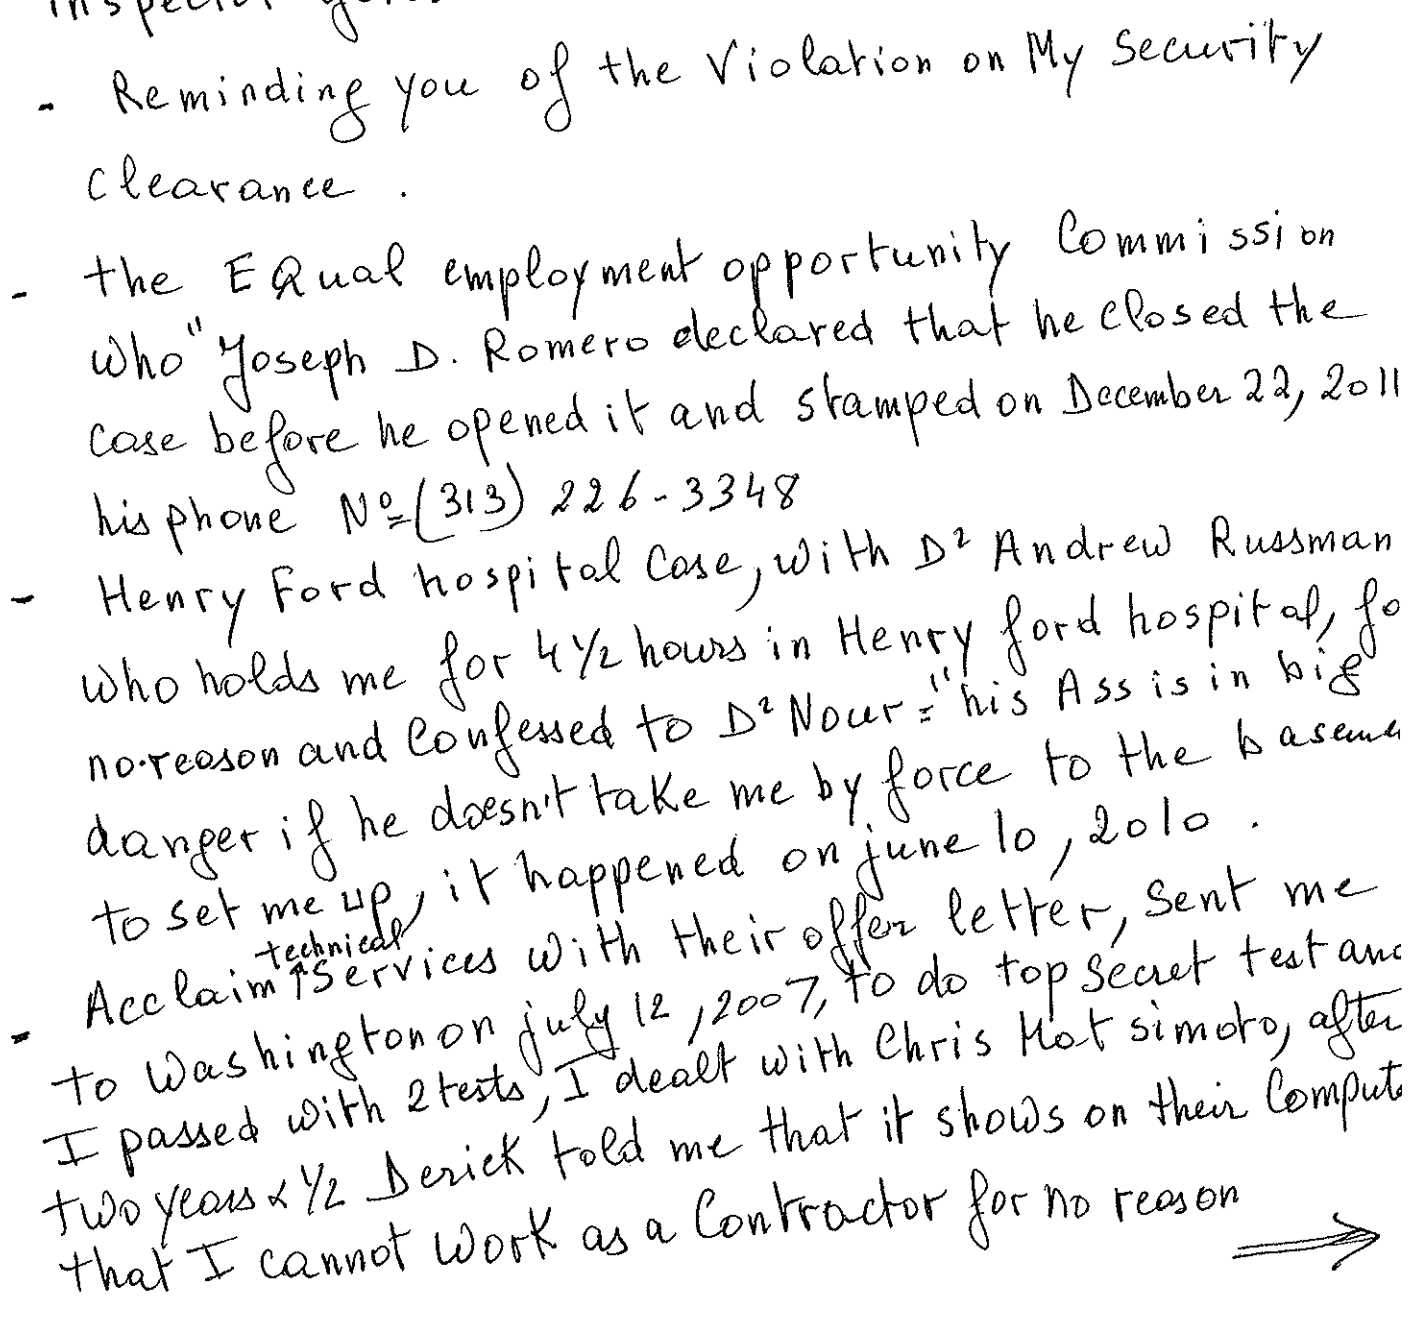 - Reminding you of the Violation on My Security
clearance .
- the EQual employment opportunity Commission
who "Joseph D. Romero declared that he closed the
case before he opened it and stamped on December 22, 2011
his phone Nº (313) 226-3348
- Henry Ford hospital Case, with D² Andrew Russman
who holds me for 4 1/2 hours in Henry ford hospital, fo
no reason and Confessed to D² Nour = "his Ass is in big
danger if he doesn't take me by force to the baseme
to set me up, it happened on june 10, 2010 .
- Acclaim technical Services with their offer letter, Sent me
to Washington on july 12, 2007, to do top secret test and
I passed with 2 tests, I dealt with Chris Motsimoto, after
two years & 1/2 Derick told me that it shows on their Compute
that I cannot work as a Contractor for no reason